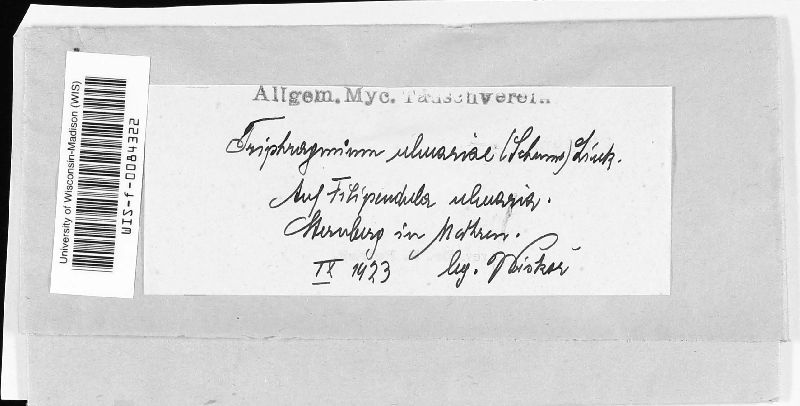 University of Wisconsin-Madison (WIS)
WIS-f-0084322
Allgem. Myc. Tauschverein.
Triphragmium ulmariae (Schum) Link.
Auf Filipendula ulmaria.
Sternberg in Mähren.
IX 1923 leg. Piskoř